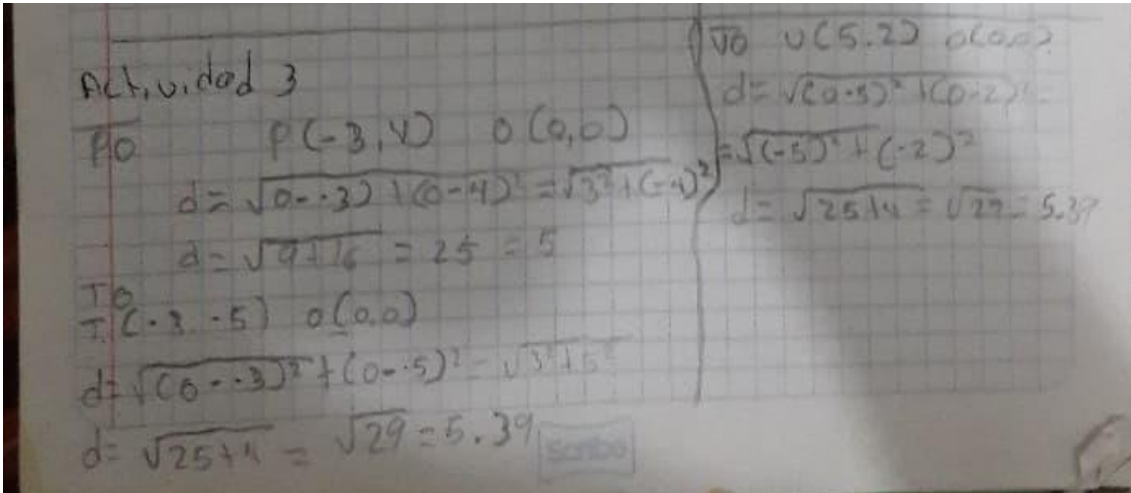 Actividad 3
PO P(-3,4) O(0,0)
d = √0--3) + (0-4)² = √3² + (-4)²
d = √9+16 = 25 = 5
TO
T(-3 -5) O(0,0)
d = √(0--3)² + (0--5)² = √3²+5²
d = √25+4 = √29 = 5.39
Scribe
UO U(5.2) O(0,0)
d = √(0-5)² + (0-2)²
= √(-5)² + (-2)²
d = √25+4 = √29 = 5.39